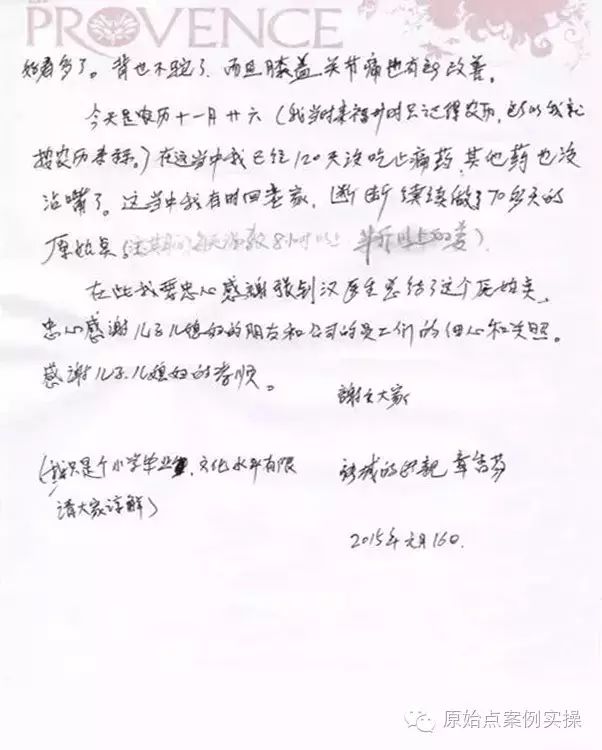 PROVENCE
好看多了。背也不驼了，而且膝盖关节痛也有所改善。
今天是农历十一月廿六（我当时来福州时只记得农历，所以我就
按农历来称。）在这当中我已经120天没吃止痛药，其他药也没
沾嘴了。这当中我有时回老家，断断续续做了70多天的
原始点（这其间的每天温敷8小时以上
在此我要忠心感謝張钊汉医生总结了这个原始点，
忠心感谢儿子儿媳妇的朋友和公司的员工们的但心和关照。
感谢儿子儿媳妇的孝顺。
謝谢大家
（我只是个小学毕业，文化水平有限
请大家谅解）
的母親 章
2015年元月16日.
原始点案例实操